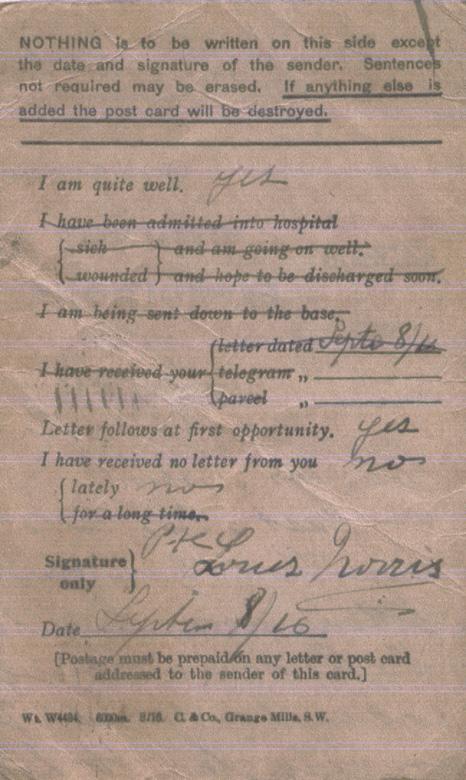 NOTHING is to be written on this side except
the date and signature of the sender. Sentences
not required may be erased. If anything else is
added the post card will be destroyed.
I am quite well. yes
I have been admitted into hospital
sick and am going on well.
wounded and hope to be discharged soon.
I am being sent down to the base.
letter dated Septe 8/16
I have received your telegram „
parcel „
Letter follows at first opportunity. yes
I have received no letter from you no
lately no
for a long time.
Signature
only
Louis Norris
Date Septem 8/16
[Postage must be prepaid on any letter or post card
addressed to the sender of this card.]
Wt. W4494. 8/16. C. & Co., Grange Mills, S.W.